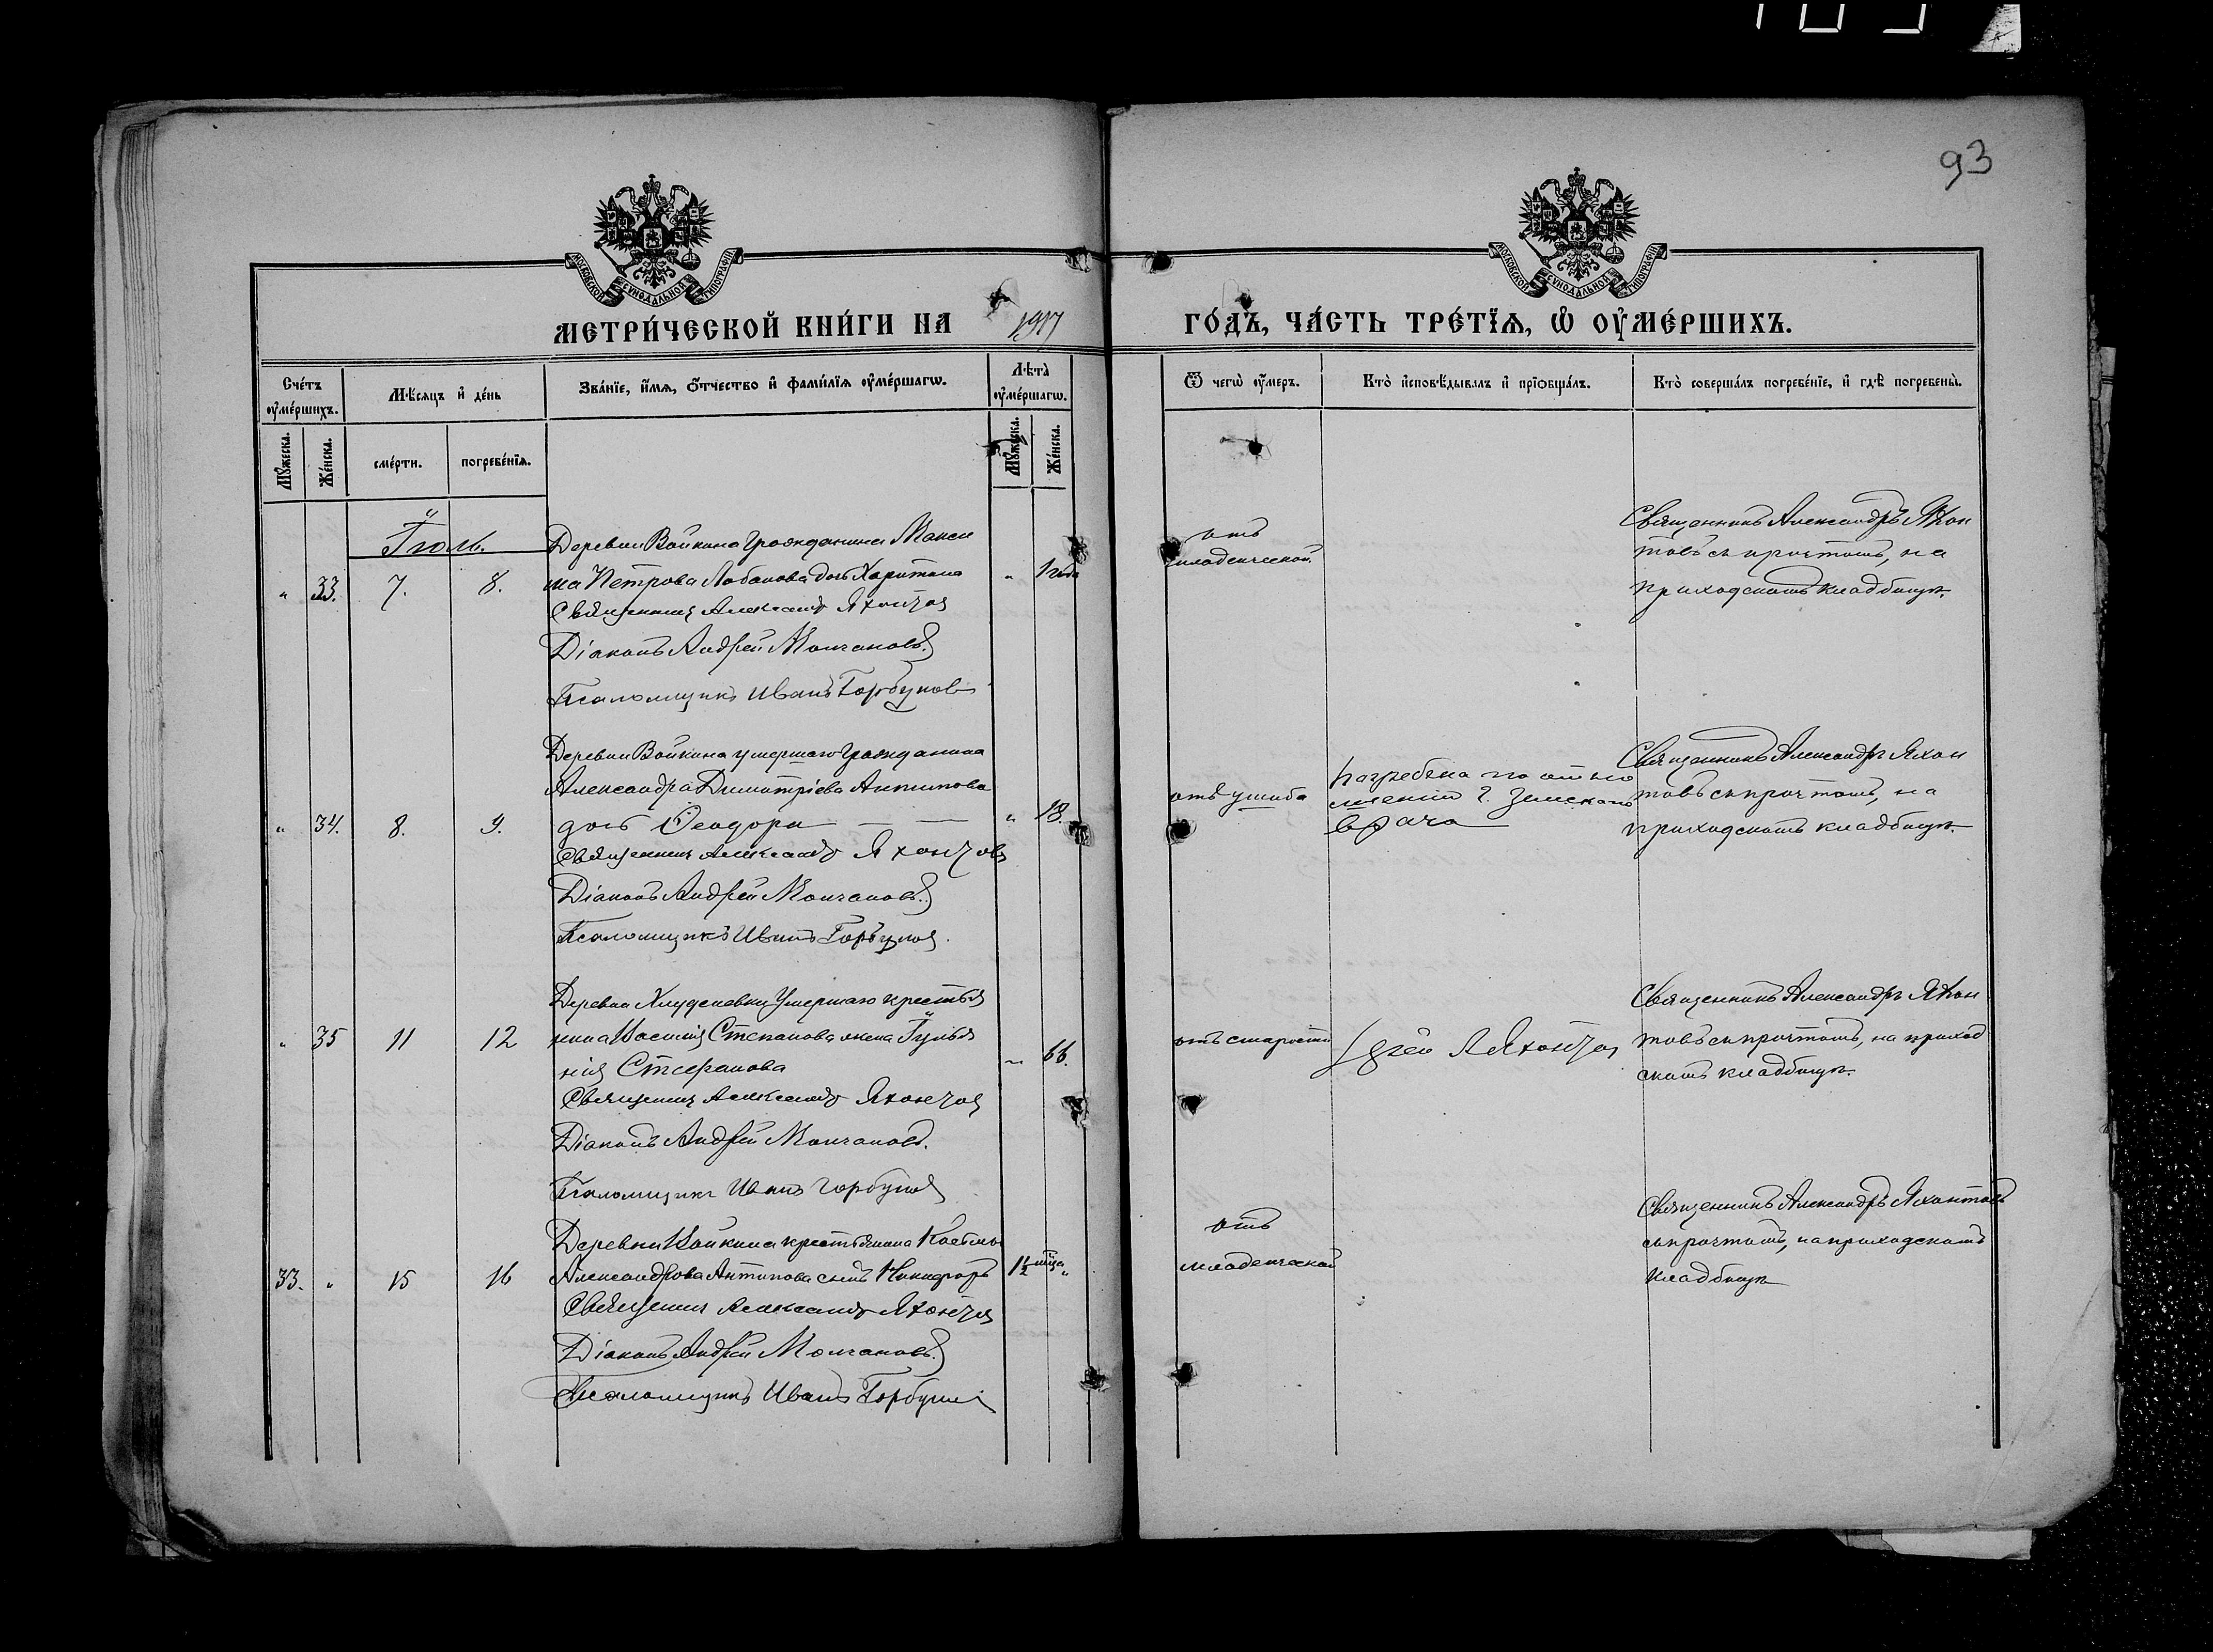 93
МОСКОВСКОЙ СѴНОДАЛЬНОЙ ТИПОГРАФІИ
МОСКОВСКОЙ СѴНОДАЛЬНОЙ ТИПОГРАФІИ
МЕТРИ́ЧЕСКОЙ КНИ́ГИ НА 1917 ГО́ДЪ, ЧА́СТЬ ТРЕ́ТЇѦ, Ѡ҆ ОУ҆МЕ́РШИХЪ.
Сче́тъ оу҆ме́ршихъ.
Мꙋ́жеска.
Же́нска.
Мѣ́сяцъ и҆ де́нь
сме́рти.
погребе́нїѧ.
Зва́нїе, и҆́мѧ, ѻ҆́тчество и҆ фами́лїѧ оу҆ме́ршагѡ.
Лѣ́та̀ оу҆ме́ршагѡ.
Мꙋ́жеска.
Же́нска.
Ѿ чегѡ̀ оу҆́меръ.
Кто̀ и҆сповѣ́дывалъ и҆ прїѡбща́лъ.
Кто̀ соверша́лъ погребе́нїе, и҆ гдѣ̀ погребены̀.
Іюль.
" 33. 7. 8.
Деревни Войкина гражданина Макси
ма Петрова Лобанова дочь Харитина
" 1 года
Священникъ Александр Яхонтов
Діаконъ Андрей Молчановъ.
Псаломщикъ Иванъ Горбунов
отъ
младенческой.
Священникъ Александръ Яхон
товъ съ причтомъ, на
приходскомъ кладбищѣ.
" 34. 8. 9.
Деревни Войкина умершаго гражданина
Александра Димитріева Антипова
дочь Ѳеодора
" 18.
Священник Александр Яхонтовъ
Діаконъ Андрей Молчановъ.
Псаломщикъ Иванъ Горбунов.
отъ ушиба
погребена по отно
шенію г. Земскаго
врача
Священникъ Александръ Яхон
товъ съ причтомъ, на
приходскомъ кладбищѣ.
" 35 11 12
Деревни Хлуденевки умершаго крестья
нина Василія Степанова жена Іулья
нія Стефанова
" 66.
Священник Александр Яхонтов
Діаконъ Андрей Молчановъ.
Псаломщикъ Иванъ Горбунов
отъ старости
Іерей А Яхонтов
Священникъ Александръ Яхон
товъ съ причтомъ, на приход
скомъ кладбищѣ.
33. " 15 16
Деревни Войкина крестьянина Косьмы
Александрова Антипова сынъ Никифоръ
1½ мѣсяца "
Священник Александр Яхонтов
Діаконъ Андрей Молчановъ.
Псаломщикъ Иванъ Горбунов
отъ
младенческой
Священникъ Александръ Яхонтовъ
съ причтомъ, на приходскомъ
кладбищѣ